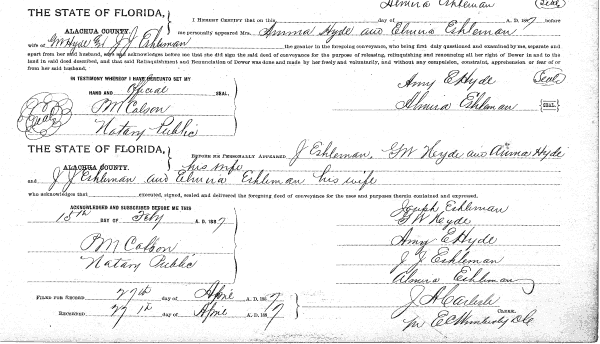 Almira Eshleman (Seal)
THE STATE OF FLORIDA,
ALACHUA COUNTY.
I HEREBY CERTIFY that on this day of A. D. 1897 before
me personally appeared Mrs. Amma Hyde and Elmira Eshleman
wife of GW Hyde & J. J. Eshleman the grantor in the foregoing conveyance, who being first duly questioned and examined by me, separate and
apart from her said husband, says and acknowledges before me that she did sign the said deed of conveyance for the purpose of releasing, relinquishing and renouncing all her right of Dower in and to the
land in said deed described, and that said Relinquishment and Renunciation of Dower was done and made by her freely and voluntarily, and without any compulsion, constraint, apprehension or fear of or
from her said husband.
IN TESTIMONY WHEREOF I HAVE HEREUNTO SET MY
HAND AND Official SEAL.
(Seal)
P M Colson
Notary Public
Amy E Hyde (Seal)
Almira Eshleman {SEAL}
THE STATE OF FLORIDA,
ALACHUA COUNTY.
BEFORE ME PERSONALLY APPEARED J Eshleman, GW Hyde and Anna Hyde
his wife
and J J Eshleman and Elmira Eshleman his wife
who acknowledge that executed, signed, sealed and delivered the foregoing deed of conveyance for the uses and purposes therein contained and expressed.
ACKNOWLEDGED AND SUBSCRIBED BEFORE ME THIS
15th DAY OF Feby A. D. 1897
P M Colson
Notary Public
Joseph Eshleman
GW Hyde
Amy E Hyde
J J Eshleman
Almira Eshleman
FILED FOR RECORD 27th day of April A. D. 1897
RECORDED 27th day of April A. D. 1897
J A Carlisle
CLERK.
pr E C Wimberly D C